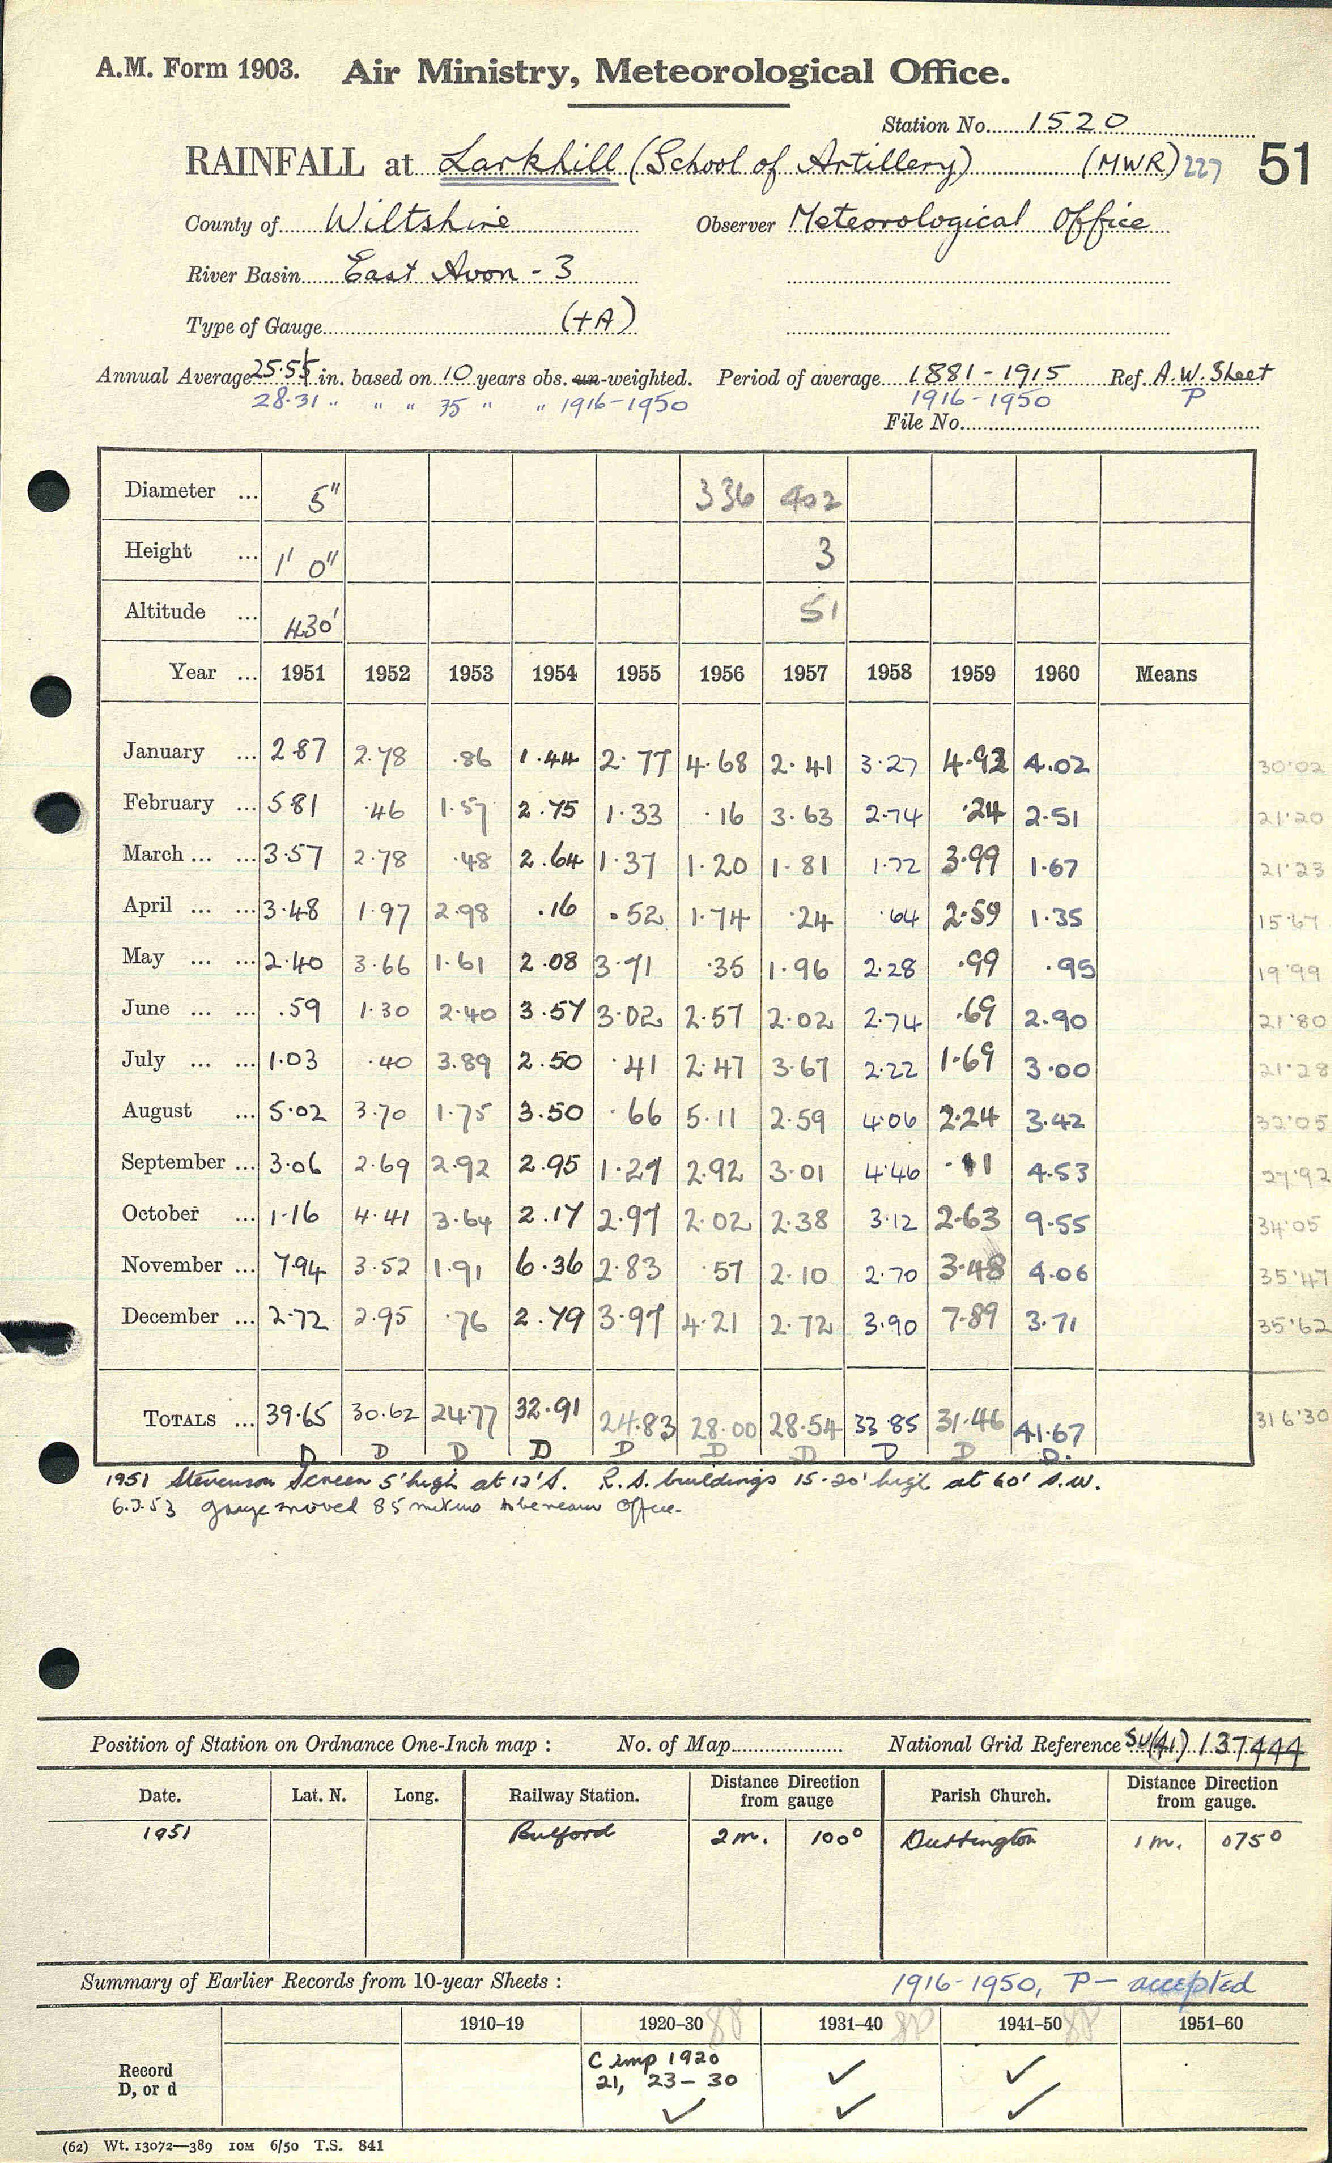 A.M. Form 1903. Air Ministry, Meteorological Office.
Station No. 1520
RAINFALL at Larkhill (School of Artillery) (MWR) 227 51
County of Wiltshire Observer Meteorological Office
River Basin East Avon - 3
Type of Gauge (+A)
Annual Average 25.55 in. based on 10 years obs. un-weighted. Period of average 1881-1915 Ref. A.W. Sheet
28.31 " " " 35 " " 1916-1950 1916-1950 P
File No.
Diameter ... 5" 336 402
Height ... 1' 0" 3
Altitude ... 430' 51
Year ... 1951 1952 1953 1954 1955 1956 1957 1958 1959 1960 Means
January ... 2.87 2.78 .86 1.44 2.77 4.68 2.41 3.27 4.92 4.02 30.02
February ... 5.81 .46 1.57 2.75 1.33 .16 3.63 2.74 .24 2.51 21.20
March ... ... 3.57 2.78 .48 2.64 1.37 1.20 1.81 1.72 3.99 1.67 21.23
April ... ... 3.48 1.97 2.98 .16 .52 1.74 .24 .64 2.59 1.35 15.67
May ... ... 2.40 3.66 1.61 2.08 3.71 .35 1.96 2.28 .99 .95 19.99
June ... ... .59 1.30 2.40 3.57 3.02 2.57 2.02 2.74 .69 2.90 21.80
July ... ... 1.03 .40 3.89 2.50 .41 2.47 3.67 2.22 1.69 3.00 21.28
August ... 5.02 3.70 1.75 3.50 .66 5.11 2.59 4.06 2.24 3.42 32.05
September ... 3.06 2.69 2.92 2.95 1.27 2.92 3.01 4.46 .11 4.53 27.92
October ... 1.16 4.41 3.64 2.17 2.97 2.02 2.38 3.12 2.63 9.55 34.05
November ... 7.94 3.52 1.91 6.36 2.83 .57 2.10 2.70 3.48 4.06 35.47
December ... 2.72 2.95 .76 2.79 3.97 4.21 2.72 3.90 7.89 3.71 35.62
TOTALS ... 39.65 30.62 24.77 32.91 24.83 28.00 28.54 33.85 31.46 41.67 316.30
D D D D D D D D D D.
1951 Stevenson Screen 5' high at 12' S. R.A. buildings 15-20' high at 60' S.W.
6.7.53 gauge moved 85 metres to be near office.
Position of Station on Ordnance One-Inch map : No. of Map National Grid Reference SU(41) 137444
Date. Lat. N. Long. Railway Station. Distance Direction from gauge Parish Church. Distance Direction from gauge.
1951 Bulford 2 m. 100° Durrington 1 m. 075°
Summary of Earlier Records from 10-year Sheets : 1916-1950, P - accepted
1910-19 1920-30 88 1931-40 1941-50 1951-60
Record D, or d C imp 1920 ✓ ✓
21, 23-30
✓ ✓ ✓
(62) Wt. 13072—389 10M 6/50 T.S. 841